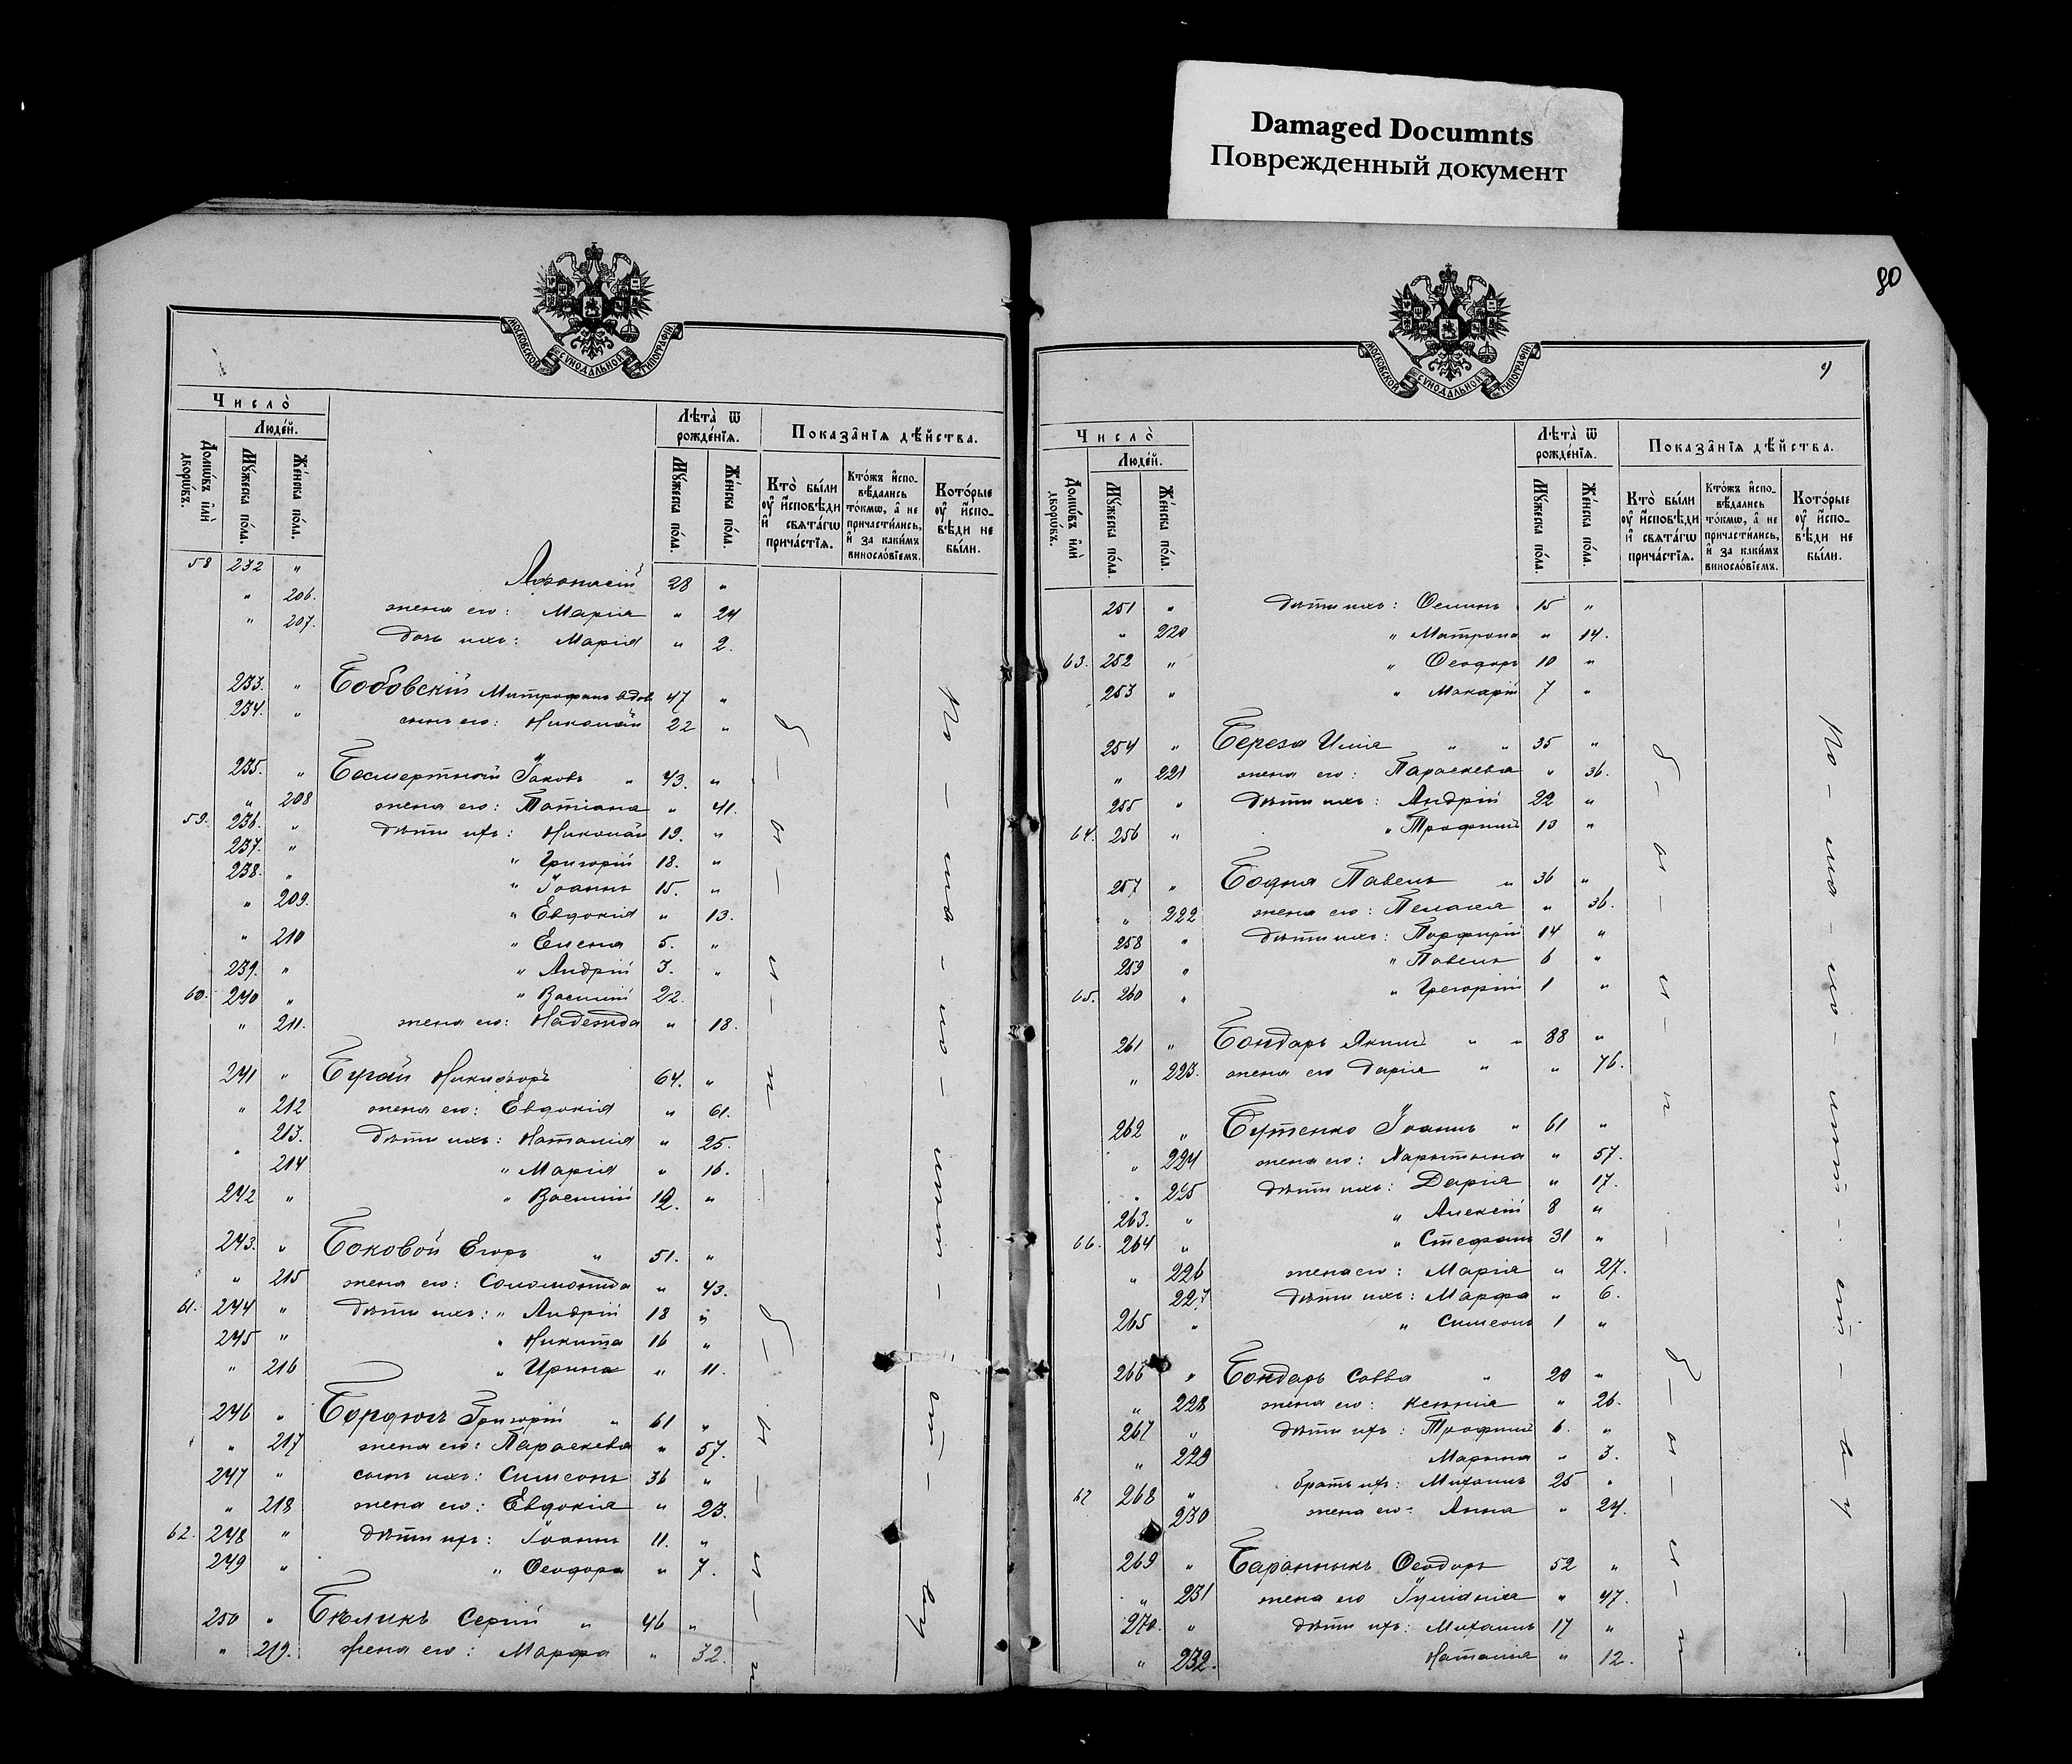 Damaged Documnts
Поврежденный документ
МОСКОВСКОЙ СѴНОДАЛЬНОЙ ТИПОГРАФІИ
Число̀
Люде́й.
Домѡ́въ и҆лѝ дворѡ́въ.
Мꙋ́жеска по́ла.
Же́нска по́ла.
Лѣта̀ ѿ рожде́нїѧ.
Мꙋ́жеска по́ла.
Же́нска по́ла.
Показа̑нїѧ дѣ́йства.
Кто̀ бы́ли оу҆ и҆́сповѣди и҆ свѧта́гѡ прича́стїѧ.
Кто́жъ и҆спо-вѣ́дались то́кмѡ, а҆ не причасти́лись, и҆ за каки́мъ винослов́їемъ.
Кото́рые оу҆ и҆́спо-вѣди не бы́ли.
58 232 " Аѳонасій 28 "
" 206. жена его: Марія " 24
" 207. дочь ихъ: Марія " 2.
233. " Бобовскій Митрофанъ вдов 47 "
234. " сынъ его: Николай 22 "
235. " Безсмертный Іаковъ " 43. "
" 208 жена его: Татіана " 41.
59. 236. " дѣти ихъ: Николай 19. "
237. " " Григорій 18. "
238. " " Іоаннъ 15. "
" 209. " Евдокія " 13.
" 210 " Елена 5. "
239. " " Андрій 3. "
60. 240 " " Василій 22.
" 211. жена его: Надежда " 18.
241 " Бугай Никифоръ 64. "
" 212 жена его: Евдокія " 61.
" 213. дѣти ихъ: Наталія " 25.
214 " Марія " 16.
242 " " Василій 12. "
243. " Боковой Егоръ " 51. "
" 215 жена его: Соломонида " 43.
61. 244 " дѣти ихъ: " Андрій 18 "
245 " " Никита 16 "
" 216 " Ирина " 11.
246 " Григорій " 61 "
" 217 жена его: Параскева " 57.
247 " сынъ ихъ: Симеонъ 36 "
" 218 жена его: Евдокія " 23.
62. 248 " дѣти ихъ: Іоаннъ 11. "
249 " " Ѳеодора " 7.
250 " Бѣликъ Сергій " 46 "
" 219. жена его: Марфа " 32.
80
МОСКОВСКОЙ СѴНОДАЛЬНОЙ ТИПОГРАФІИ
Число̀
Люде́й.
Домѡ́въ и҆лѝ дворѡ́въ.
Мꙋ́жеска по́ла.
Же́нска по́ла.
Лѣта̀ ѿ рожде́нїѧ.
Мꙋ́жеска по́ла.
Же́нска по́ла.
Показа̑нїѧ дѣ́йства.
Кто̀ бы́ли оу҆ и҆́сповѣди и҆ свѧта́гѡ прича́стїѧ.
Кто́жъ и҆спо-вѣ́дались то́кмѡ, а҆ не причасти́лись, и҆ за каки́мъ винослов́їемъ.
Кото́рые оу҆ и҆́спо-вѣди не бы́ли.
251 " дѣти ихъ: 15 "
" 220 " Матрона " 14.
63. 252 " " Ѳеодоръ 10 "
253 " " Макарій 7 "
254 " Береза Илія " " 35 "
" 221 жена его: Параскева " 36.
255 " дѣти ихъ: Андрій 22 "
64. 256 " " Трофимъ 13 "
257 " Бодня Павелъ " 36 "
" 222 жена его: Пелагія " 36.
258 " дѣти ихъ: Порфирій 14 "
259 " " Павелъ 6 "
65. 260 " " Григорій 1 "
261 " Бондарь Якимъ " " 88 "
" 223. жена его Дарія " " 76.
262 " Бутенко Іоаннъ " 61 "
" 224 жена его: Харытына " 57.
" 225 дѣти ихъ: Дарія " 17.
263. " " Алексій 8 "
66. 264 " " Стефанъ 31 "
" 226 жена его: Марія " 27.
" 227 дѣти ихъ: Марфа " 6.
265 " " Симеонъ 1 "
266 " Бондарь Савва " 29 "
" 228 жена его: Ксенія " 26.
267 " дѣти ихъ: Трофимъ 6. "
" 229 Марына " 3.
67 268 " братъ ихъ: Михаилъ 25 "
230 жена его: Анна " 24.
269 " Баранныкъ Ѳеодоръ 52 "
" 231 жена его Іуліанія " 47.
270. " дѣти ихъ: Михаилъ 17 "
" 232. Наталія " 12.